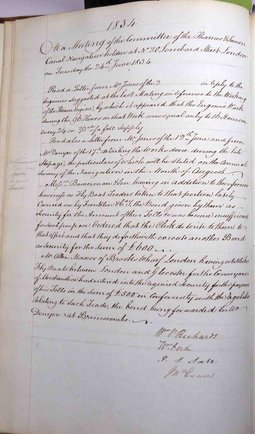 1834
At a Meeting of the Committee of the Thames & Severn
Canal Navigation holden at No 20 Lombard Street London
on Tuesday the 24th June 1834
Read a Letter from Mr Jones of the 2 in reply to the
Enquiries suggested at the last Meeting in reference to the Working
of the Steam Engine, by which it appeared that the Engine
during the 48 Hours in that Week were equal only to
every 24 or full supply
Read also a Letter from Mr Jones of the 12th June and from
Mr Denyer of the 17th stating the Work done during the late
Stoppage, the particulars of which will be stated on the Annual
Survey of the Navigation in the Month of August
Messrs Bowman Son having in addition to their former
business as Fly Boat Traders taken that portion lately
Carried on by Franklin the Bond given by them as
Security for the Amount of their Tolls is now become insufficient
for that purpose Ordered that the Clerk do write to them to
that effect and that they do forthwith execute another Bond
as Security for the Sum of £600
Mr Mason of Brooks Wharf London having established
Fly Boats between London and Gloucester for the Conveyance
of Merchandize had entered into the required Security for the payment
of his Tolls in the sum of £500 in Conformity with the Regulations
relating to such Trade, the bond being forwarded to Mr
Denyer at Brimscombe
Wm Richardt
Wm Ford
J. S. Salt
Jno Evans